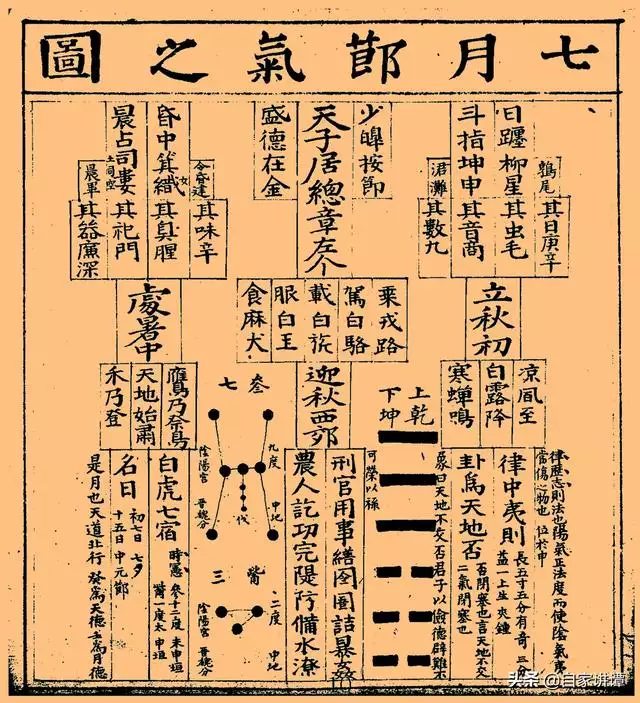 七月節氣之圖
鶉尾
其日庚辛
日躔柳星其虫毛
斗指坤申其音商
涒灘
其數九
少皞按節
天子居總章左个
盛德在金
令斎建
其味辛
昏中箕織女其臭腥
晨占司婁其祀門
土司空
晨軍
其谷廉深
立秋初
乘戎路
駕白駱
載白旂
服白玉
食麻犬
處暑中
凉風至
白露降
寒蟬鳴
迎秋西郊
鷹乃祭鳥
天地始肅
禾乃登
律歷志則法也陽氣正法度而使陰氣夷
當傷之物也 位於申
律中夷則 長五寸五分有奇 三分
益一上生夾鍾
卦為天地否 否閉塞也言天地不交
二氣閉塞也
上乾
下坤
象曰天地不交否君子以儉德辟難不
可榮以祿
刑官用事繕囹圄詰暴姦
農人訖功完隄防備水潦
七 叁
九度
申地
伐
陰陽宮
晉魏分
三 觜
二度
申地
陰陽宮
晉魏分
白虎七宿 時憲 參十二度 未申垣
觜一度太 申垣
名日 初七日 七夕
十五日 中元節
是月也天道北行 癸為天德壬為月德
头条 @自家班墰